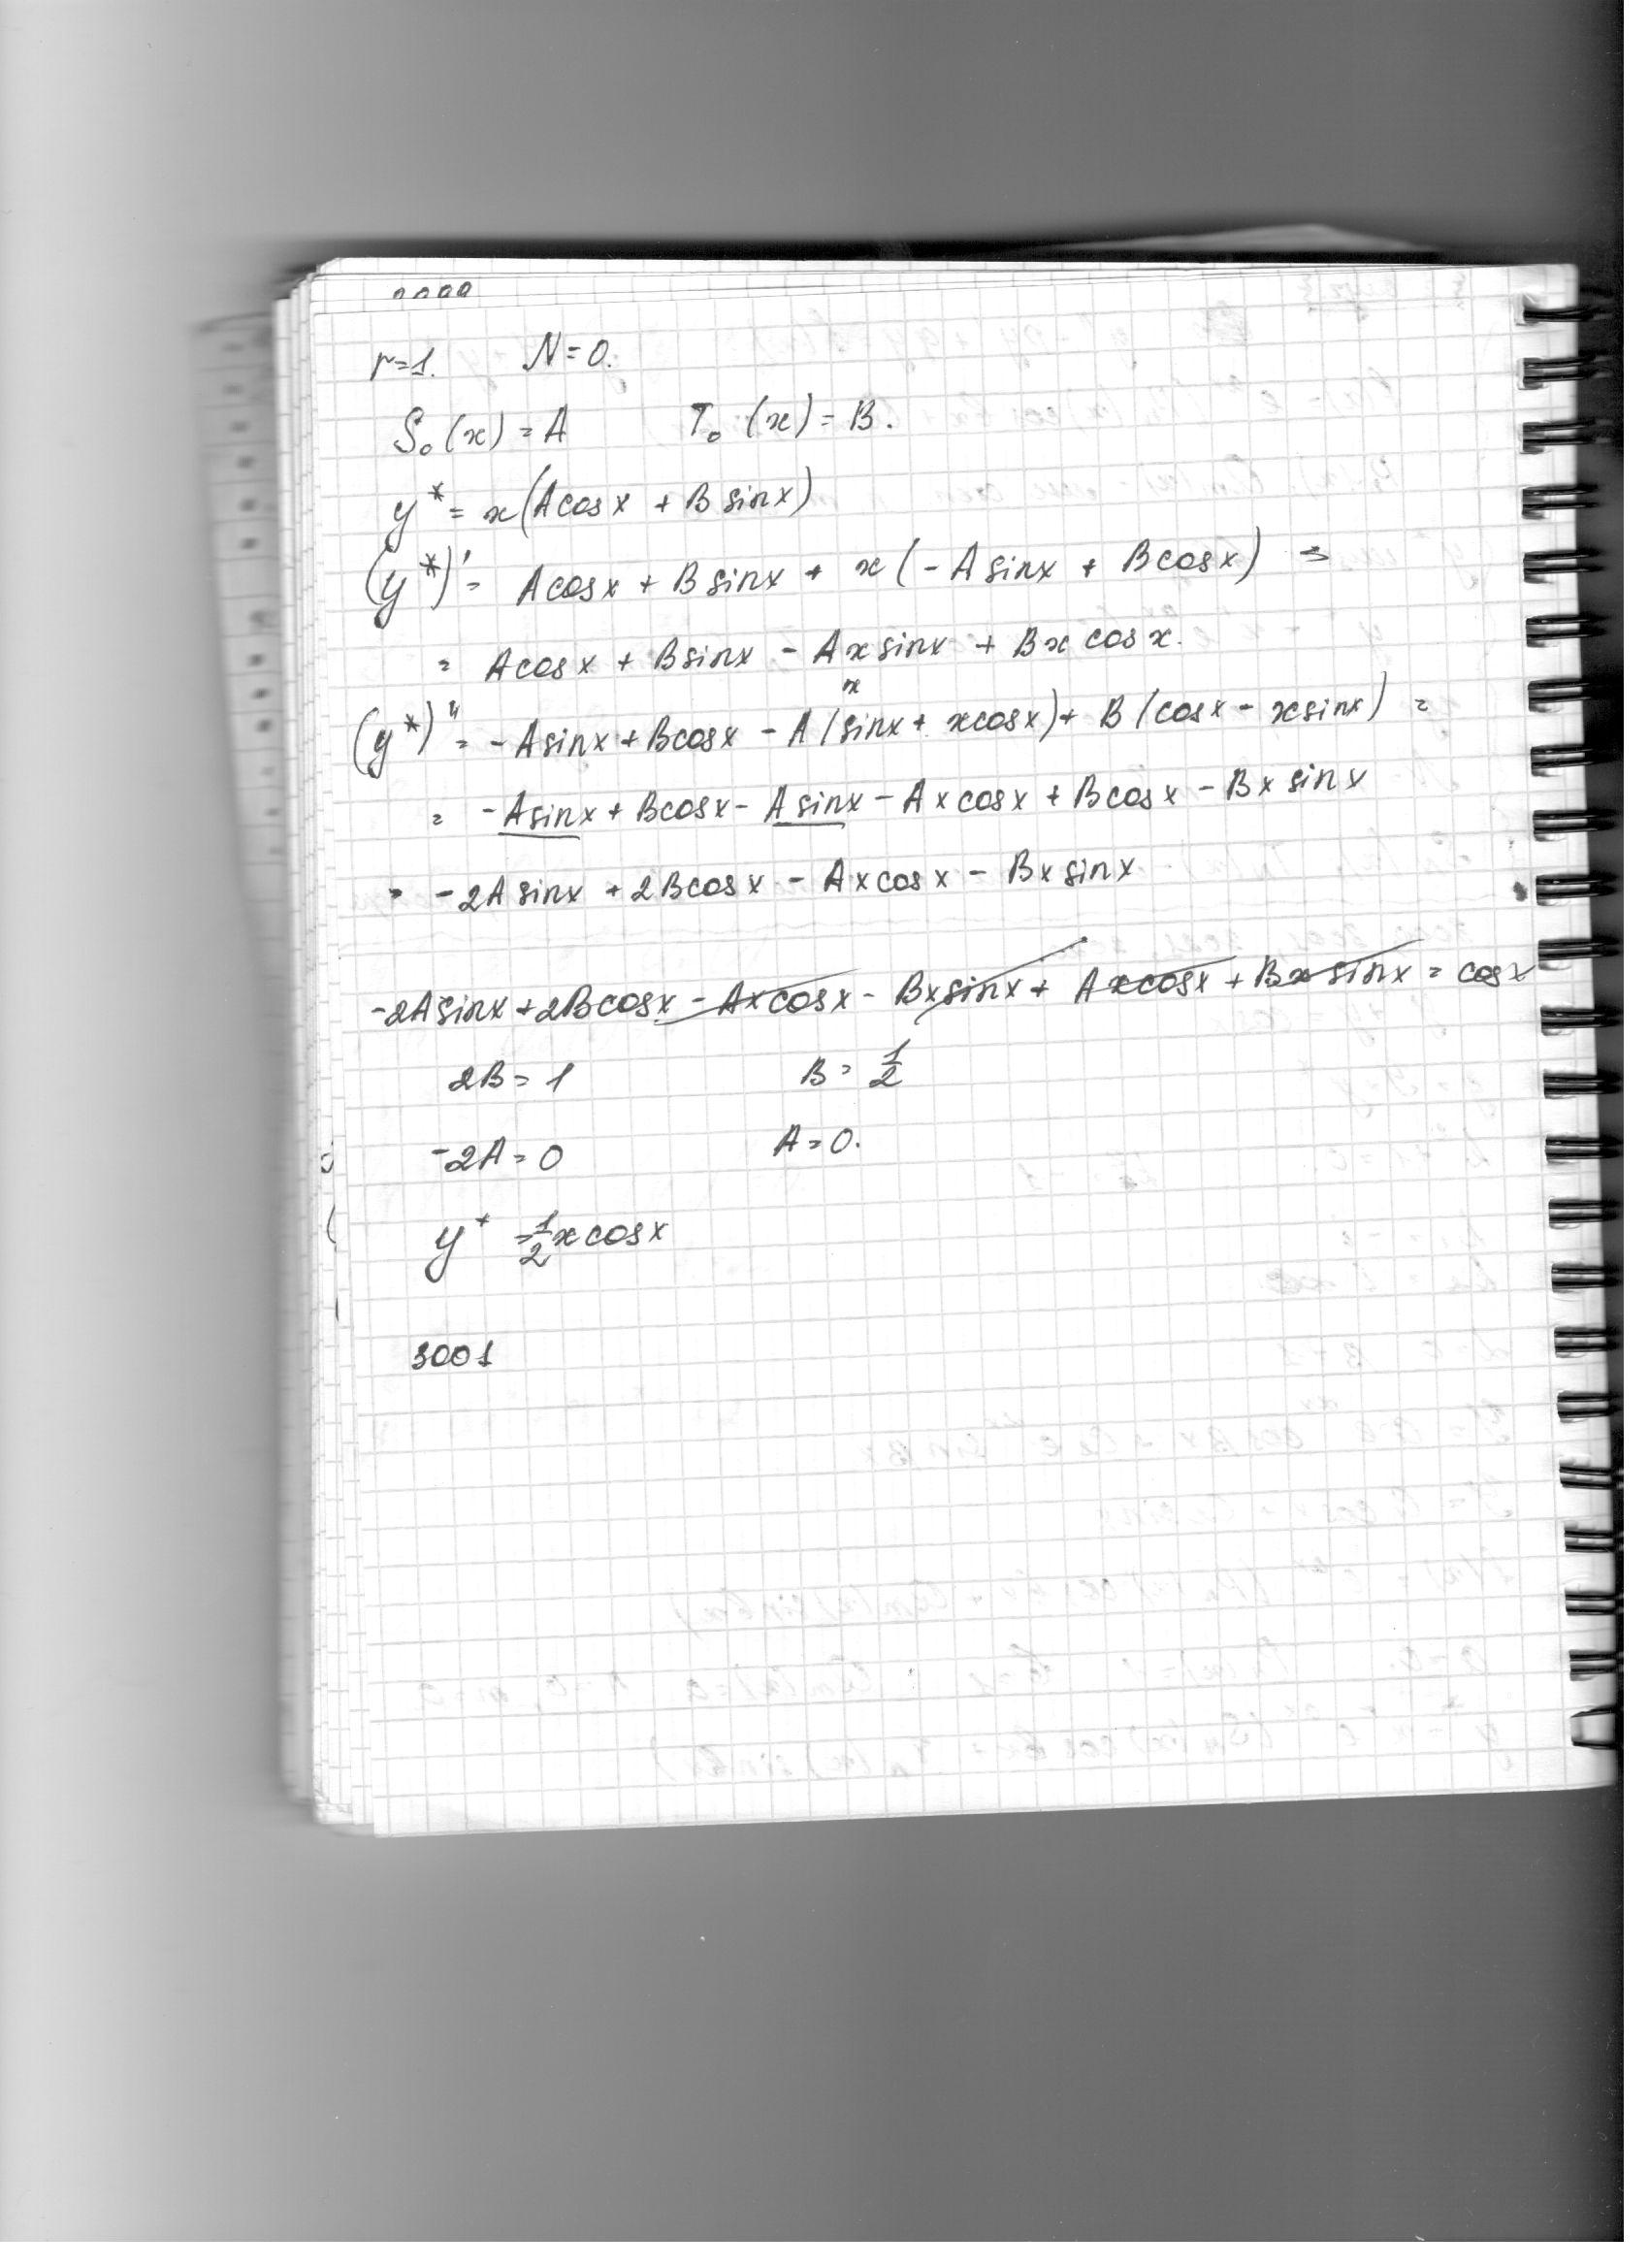 r=1. N=0.
S₀(x)=A T₀(x)=B.
y*= x(Acosx + B sinx)
(y*)'= Acosx + B sinx + x(-A sinx + B cosx) =
= Acosx + Bsinx - Ax sinx + Bx cosx.
x
(y*)"= -Asinx + Bcosx - A(sinx + xcosx) + B(cosx - xsinx) =
= -Asinx + Bcosx - Asinx - Axcosx + Bcosx - Bx sinx
= -2A sinx + 2Bcosx - Axcosx - Bx sinx
-2Asinx + 2Bcosx - Axcosx - Bxsinx + Axcosx + Bx sinx = cosx
2B = 1 B = 1/2
-2A = 0 A = 0.
y* = 1/2 x cosx
3001